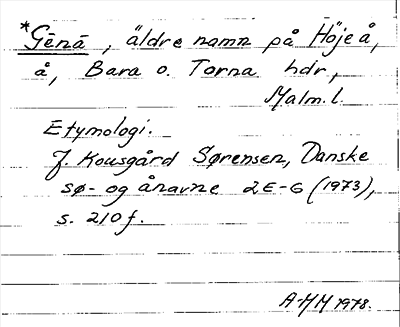 *Gēnā, äldre namn på Höjeå,
å, Bara o. Torna hdr,
Malm. l.
Etymologi.
J. Kousgård Sørensen, Danske
sø- og ånavne 2 E-G (1973),
s. 210 f.
A-HM 1978.